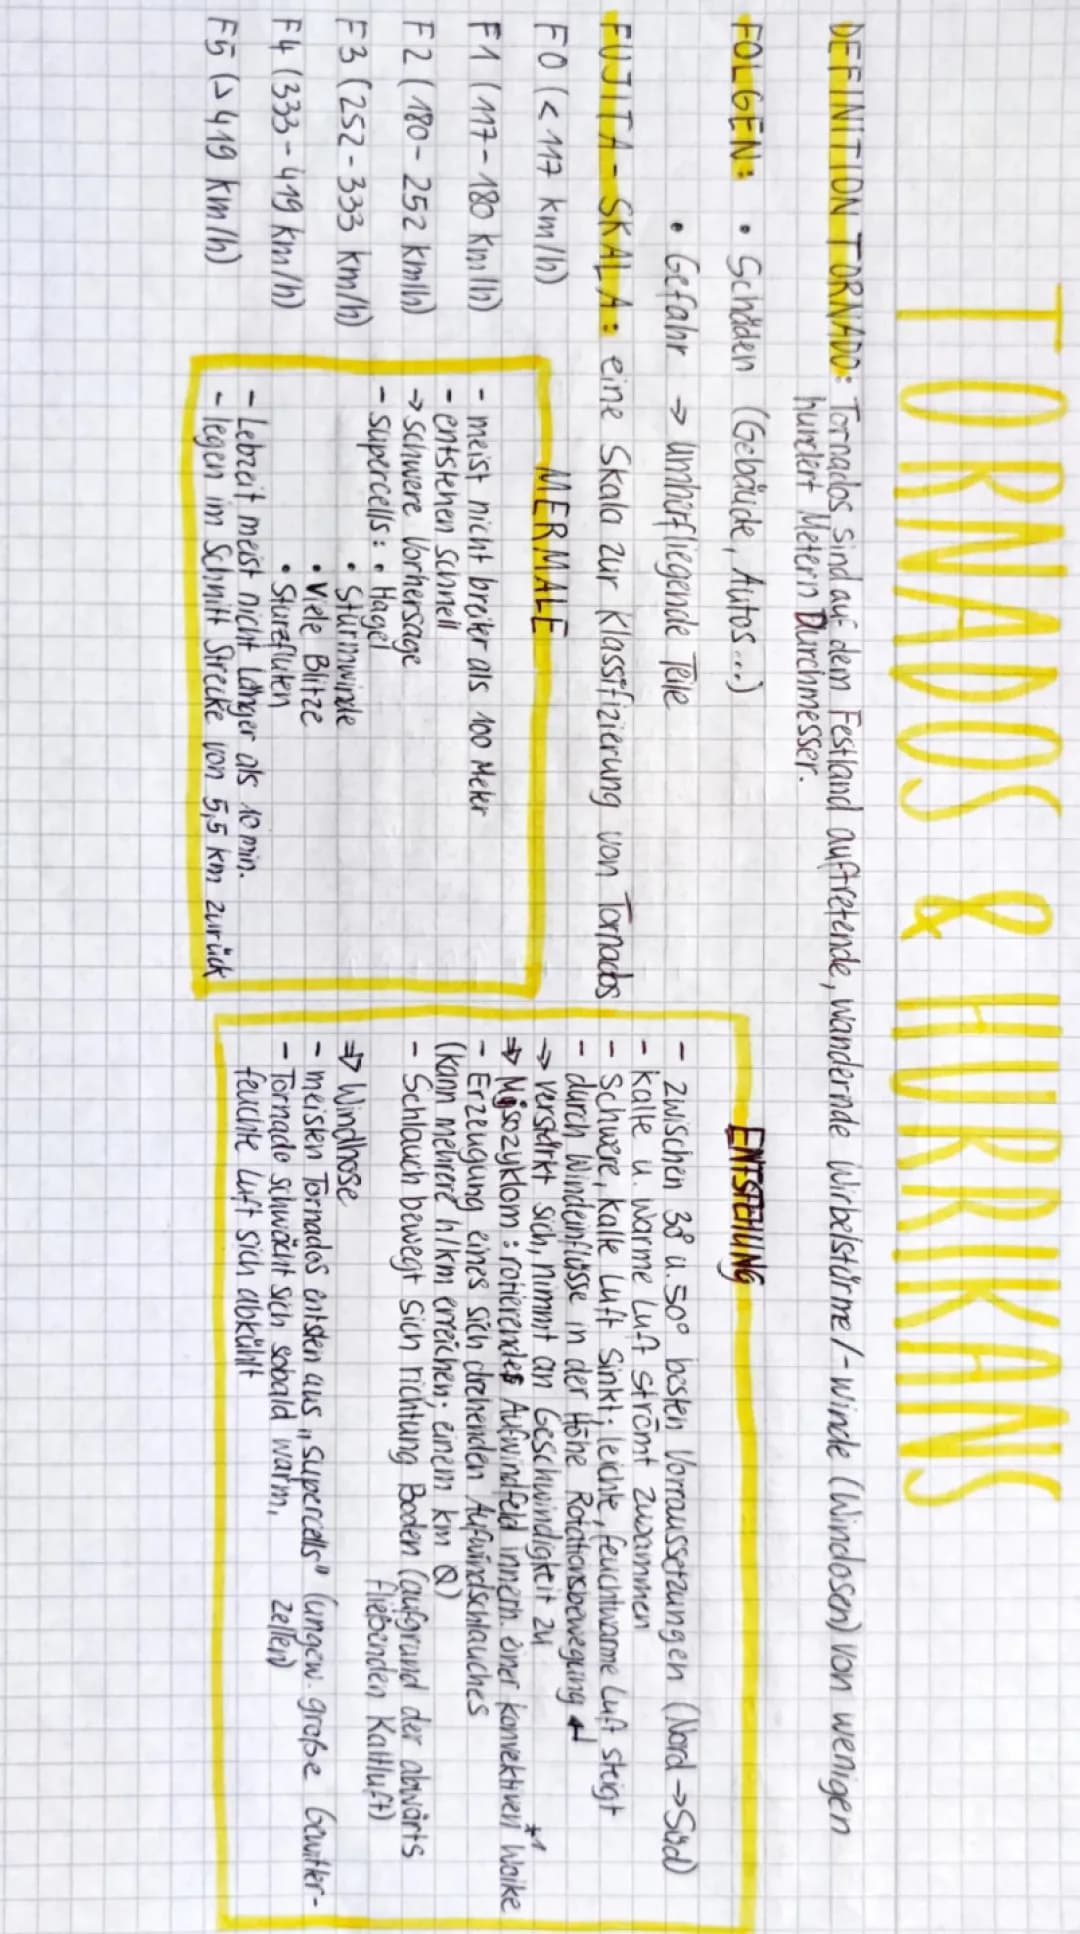 TORNADOS & HURRIKANS
DEFINITION TORNADO: Tornados sind auf dem Festland auftretende, wandernde Wirbelstürme/-winde (Windosen) von wenigen
hundert Metern Durchmesser.
FOLGEN: • Schäden (Gebäude, Autos...)
• Gefahr → Umhürfliegende Teile
FUJITA-SKALA: eine Skala zur Klassifizierung von Tornados
F0 (<117 km/h)
F1 (117-180 km/h)
F2 (180-252 km/h)
F3 (252-333 km/h)
F4 (333-419 km/h)
F5 (>419 km/h)
MERMALE
- meist nicht breiter als 100 Meter
- entstehen schnell
→ schwere Vorhersage
- supercells: • Hagel
• Sturmwinde
• Viele Blitze
• Sturzfluten
- Lebzeit meist nicht länger als 10 min.
- legen im Schnitt Strecke von 5,5 km zurück
ENTSTEHUNG
- zwischen 30° u. 50° besten Vorraussetzungen (Nord → Süd)
- kalte u. warme Luft strömt zusammen
- schwere, kalte Luft sinkt; leichte, feuchtwarme Luft steigt
- durch Windeinflüsse in der Höhe Rotationsbewegung ↵
→ verstärkt sich, nimmt an Geschwindigkeit zu
⇒ Mesozyklom: rotierendes Aufwindfeld innerh. einer konvektiven Wolke *1
- Erzeugung eines sich drehenden Aufwindschlauches
(kann mehrere h/km erreichen; einem km Ø)
- Schlauch bewegt sich richtung Boden (aufgrund der abwärts
fließenden Kaltluft)
⇒ Windhose
- meisten Tornados entsten aus „supercells" (ungew. große Gewitter-
zellen)
- Tornado schwächt sich sobald warm,
feuchte Luft sich abkühlt